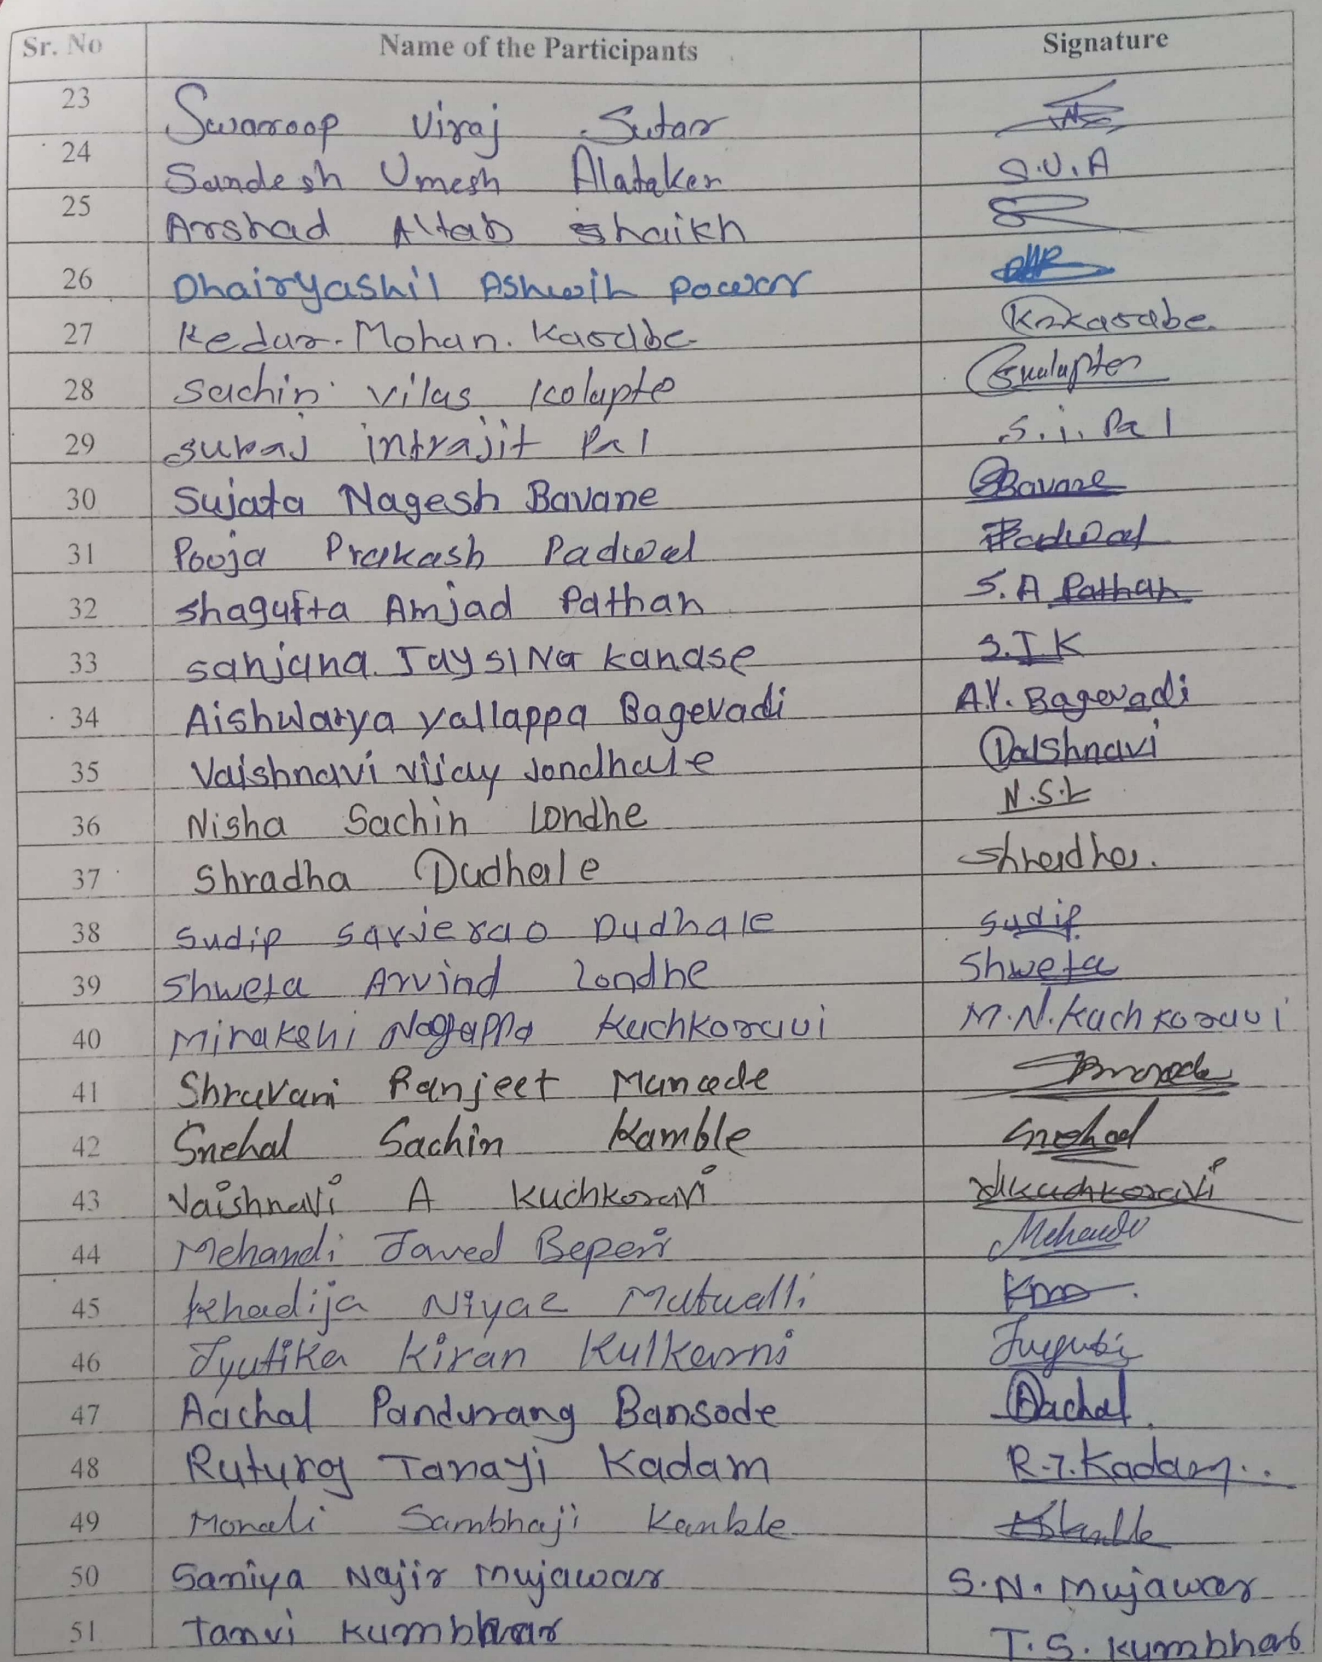 Sr. No Name of the Participants Signature
23 Swaroop Viraj Sutar
24 Sandesh Umesh Alataker S.U.A
25 Arshad Altab Shaikh
26 Dhairyashil Ashwih Pawar
27 Kedar. Mohan. Kasabe Kasabe.
28 Sachin Vilas Kolapte
29 Suraj intrajit Pal S.i. Pal
30 Sujata Nagesh Bavane Bavane
31 Pooja Prakash Padwal Padwal
32 Shagufta Amjad Pathan S.A Pathan
33 Sanjana. JaySING Kanase S.J K
34 Aishwarya Yallappa Bagevadi A.Y. Bagevadi
35 Vaishnavi Vijay Jondhale Vaishnavi
36 Nisha Sachin Londhe N.S.L
37 Shradha Dudhale Shradha.
38 Sudip Sarjerao Dudhale Sudip
39 Shweta Arvind Londhe Shweta
40 Minakshi Nagappa Kuchkoravi M.N.Kuchkoravi
41 Shravani Ranjeet Manade
42 Snehal Sachin Kamble Snehal
43 Vaishnavi A Kuchkoravi Kuchkoravi
44 Mehandi Javed Beperi Mehandi
45 Khadija Niyaz Mutwalli
46 Jyutika Kiran Kulkarni
47 Aachal Pandurang Bansode Aachal
48 Ruturaj Tanayi Kadam R.T.Kadam
49 Monali Sambhaji Kamble
50 Saniya Najir Mujawar S.N. Mujawar
51 Tanvi Kumbhar T.S. Kumbhar